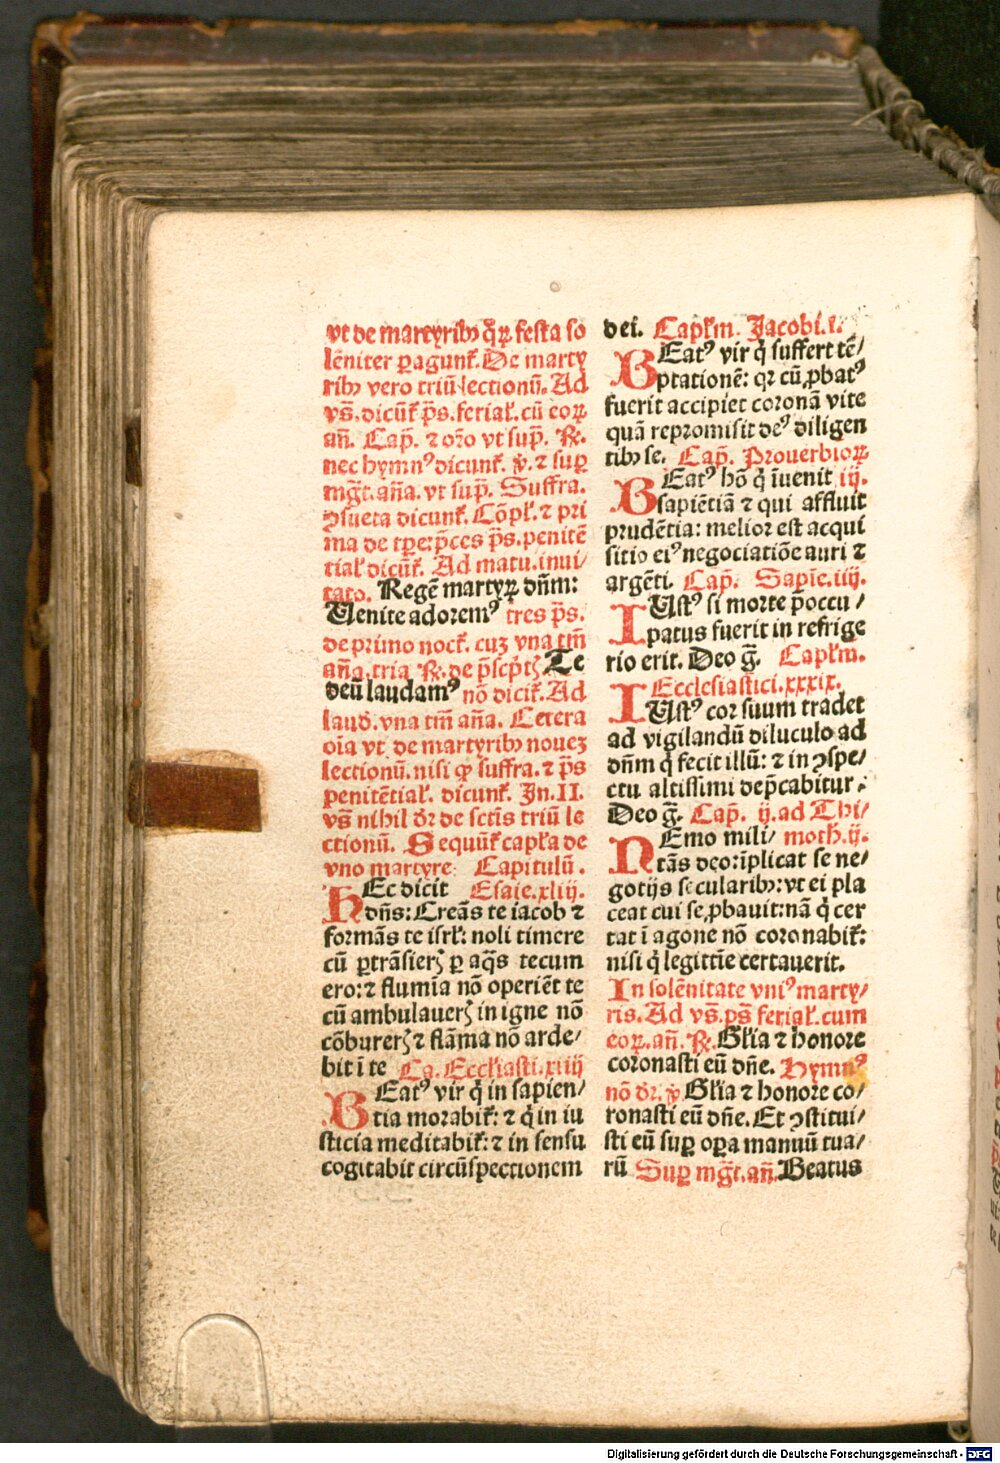 vt de martyribꝫ q̄ꝝ festa so
lēniter ꝑagunt᷑. De marty
ribꝫ vero triū lectionū. Ad
vs̄. dicūt᷑ p̄s. ferial᷑. cū eoꝝ
an̄. Cap̄. ⁊ oīo vt sup̄. ℟.
nec hymnꝰ dicunt᷑. ℣. ⁊ suꝑ
mḡt. an̄a. vt sup̄. Suffra.
ꝯsueta dicunt᷑. Cōpl᷑. ⁊ pri
ma de tꝑe: p̄ces p̄s. penitē
tial᷑ dicūt᷑. Ad matu. inui/
tato. Regē martyꝝ dn̄m:
Venite adoremꝰ tres p̄s.
de primo noct᷑. cuꝫ vna tm̄
an̄a. tria ℟. de p̄scp̄tꝭ Te
deū laudamꝰ nō dicit᷑. Ad
laud̄. vna tm̄ an̄a. Cetera
oīa vt de martyribꝫ noueꝫ
lectionū. nisi ꝙ suffra. ⁊ p̄s
penitētial᷑. dicunt᷑. In. II.
vs̄ nihil dr̄ de sct̄is triū le
ctionū. Sequūt᷑ capl᷑a de
vno martyre Capitulū.
HEc dicit Esaie. xliij.
dn̄s: Creās te iacob ⁊
formās te isrl᷑: noli timere
cū ꝑtrāsierꝭ ꝑ aq̄s tecum
ero: ⁊ flumīa nō operiēt te
cū ambulauerꝭ in igne nō
cōburerꝭ ⁊ flāma nō arde/
bit ī te Ca. Eccl᷑iasti. xiiij
BEatꝰ vir q̇ in sapien/
tia morabit᷑: ⁊ q̇ in iu
sticia meditabit᷑: ⁊ in sensu
cogitabit circūspectionem
dei. Capl᷑m. Jacobi. i.
BEatꝰ vir q̇ suffert tē/
ptationē: qꝛ cū ꝓbatꝰ
fuerit accipiet coronā vite
quā repromisit deꝰ diligen
tibꝫ se. Cap̄. Prouerbioꝝ
BEatꝰ hō q̇ īuenit iij.
sapiētiā ⁊ qui affluit
prudētia: melior est acqui
sitio eiꝰ negociatiōe auri ⁊
argēti. Cap̄. Sapīe. iiij.
IVstꝰ si morte p̄occu/
patus fuerit in refrige
rio erit. Deo ḡ. Capl᷑m.
Ecclesiastici. xxxix.
IVstꝰ cor suum tradet
ad vigilandū diluculo ad
dn̄m q̇ fecit illū: ⁊ in ꝯspe/
ctu altissimi dep̄cabitur.
Deo ḡ. Cap̄. ij. ad Thi/
NEmo mili/ moth̄. ij.
tās deo: īplicat se ne/
gotijs secularibꝫ: vt ei pla
ceat cui se ꝓbauit: nā q̇ cer
tat ī agone nō coronabit᷑:
nisi q̇ legittīe certauerit.
In solēnitate vniꝰ marty/
ris. Ad vs̄. ps̄ ferial᷑. cum
eoꝝ. an̄. ℟. Gl᷑ia ⁊ honore
coronasti eū dn̄e. Hymnꝰ
nō dr̄. ℣ Gl᷑ia ⁊ honore co/
ronasti eū dn̄e. Et ꝯstitui/
sti eū suꝑ oꝑa manuū tua/
rū Suꝑ mḡt. an̄. Beatus
Digitalisierung gefördert durch die Deutsche Forschungsgemeinschaft - DFG